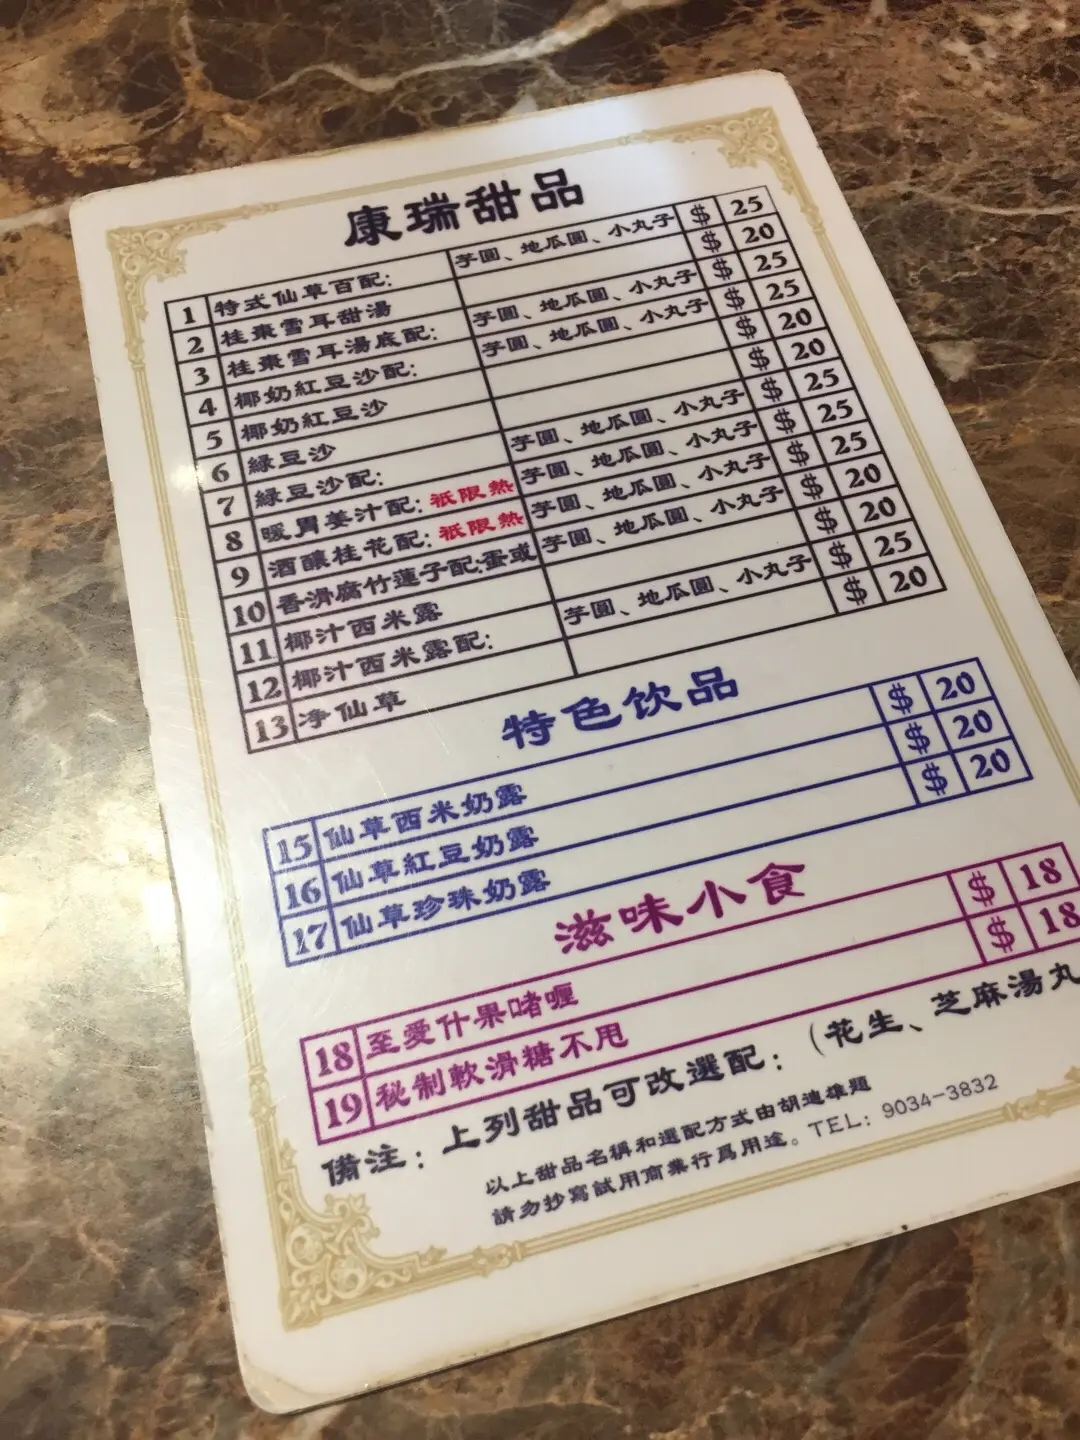 康瑞甜品
1 特式仙草百配: 芋圓、地瓜圓、小丸子 $ 25
2 桂棗雪耳甜湯 $ 20
3 桂棗雪耳湯底配: 芋圓、地瓜圓、小丸子 $ 25
4 椰奶紅豆沙配: 芋圓、地瓜圓、小丸子 $ 25
5 椰奶紅豆沙 $ 20
6 綠豆沙 $ 20
7 綠豆沙配: 芋圓、地瓜圓、小丸子 $ 25
8 暖胃姜汁配: 祗限熱 芋圓、地瓜圓、小丸子 $ 25
9 酒釀桂花配: 祗限熱 芋圓、地瓜圓、小丸子 $ 25
10 香滑腐竹蓮子配:蛋或 芋圓、地瓜圓、小丸子 $ 20
11 椰汁西米露 $ 20
12 椰汁西米露配: 芋圓、地瓜圓、小丸子 $ 25
13 净仙草 $ 20
特色饮品
15 仙草西米奶露 $ 20
16 仙草紅豆奶露 $ 20
17 仙草珍珠奶露 $ 20
滋味小食
18 至愛什果啫喱 $ 18
19 秘制軟滑糖不甩 $ 18
備注: 上列甜品可改選配: (花生、芝麻湯丸
以上甜品名稱和選配方式由胡迪雄題
請勿抄寫試用商業行爲用途。TEL: 9034-3832